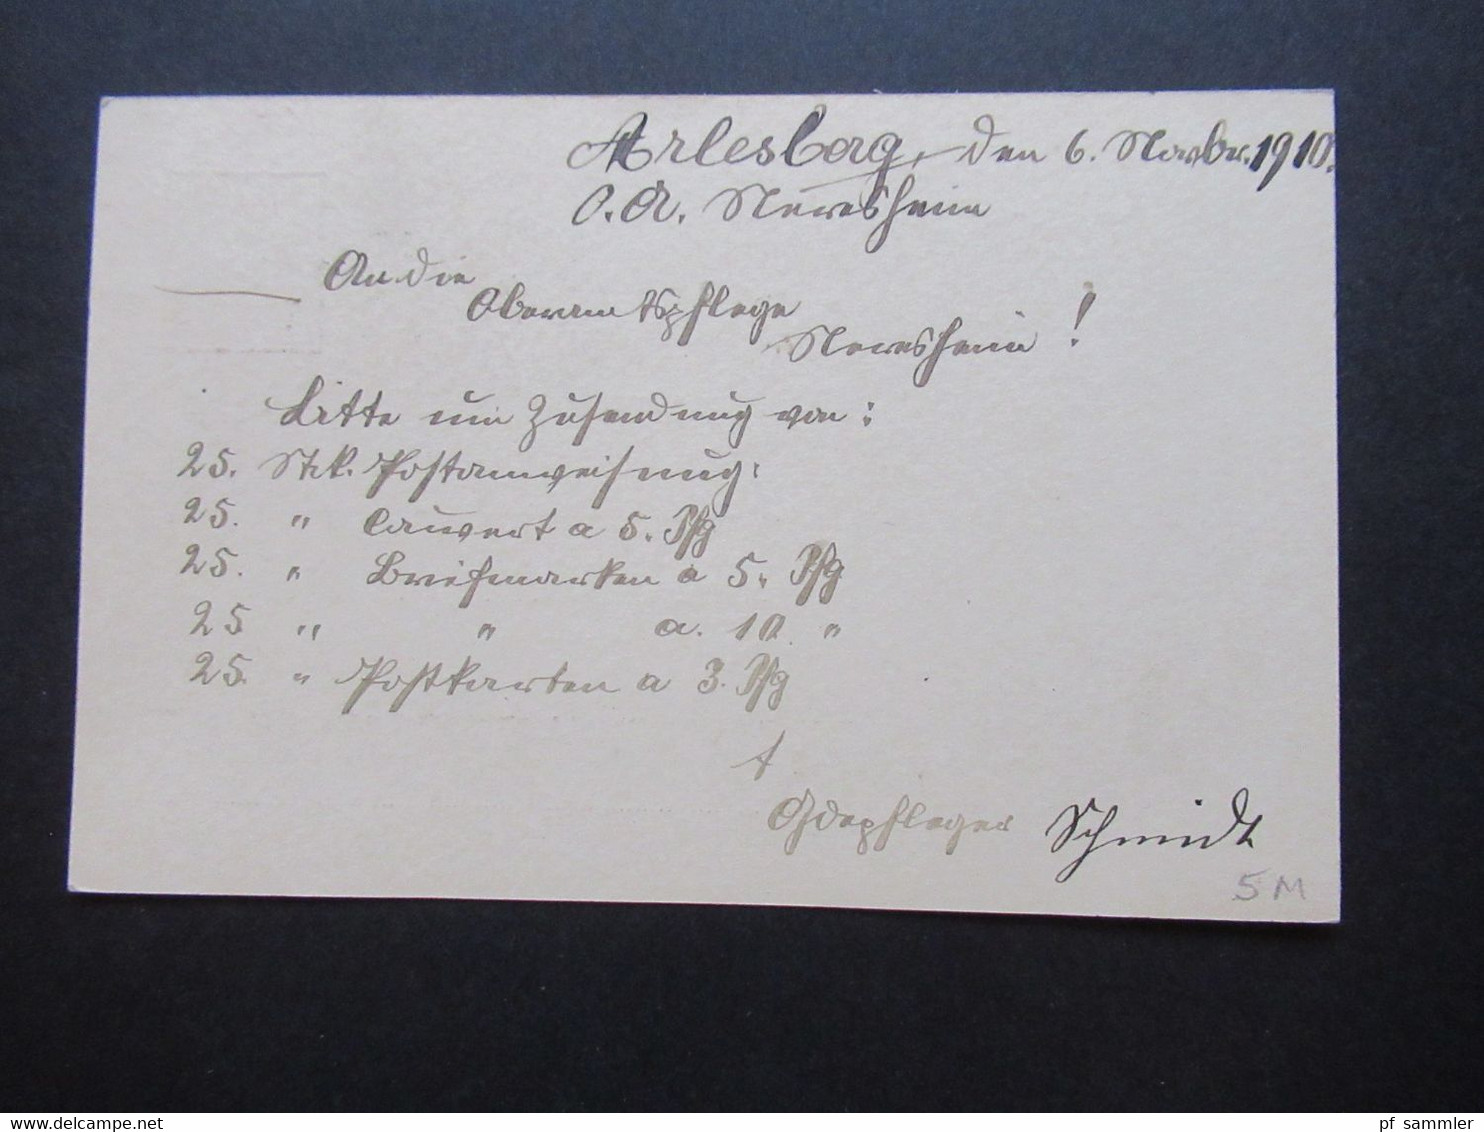 Arlesberg, den 6. Novbr. 1910.
O.A. Neresheim
An die
Oberamtspflege
Neresheim!
Bitte um Zusendung von:
25. Stck. Postanweisung:
25. " Couvert a 5. Pfg
25. " Briefmarken a 5. Pfg
25 " " a. 10 "
25. " Postkarten a 3. Pfg
t
Gdepfleger Schmidt
5 M
www.delcampe.net
pf_sammler